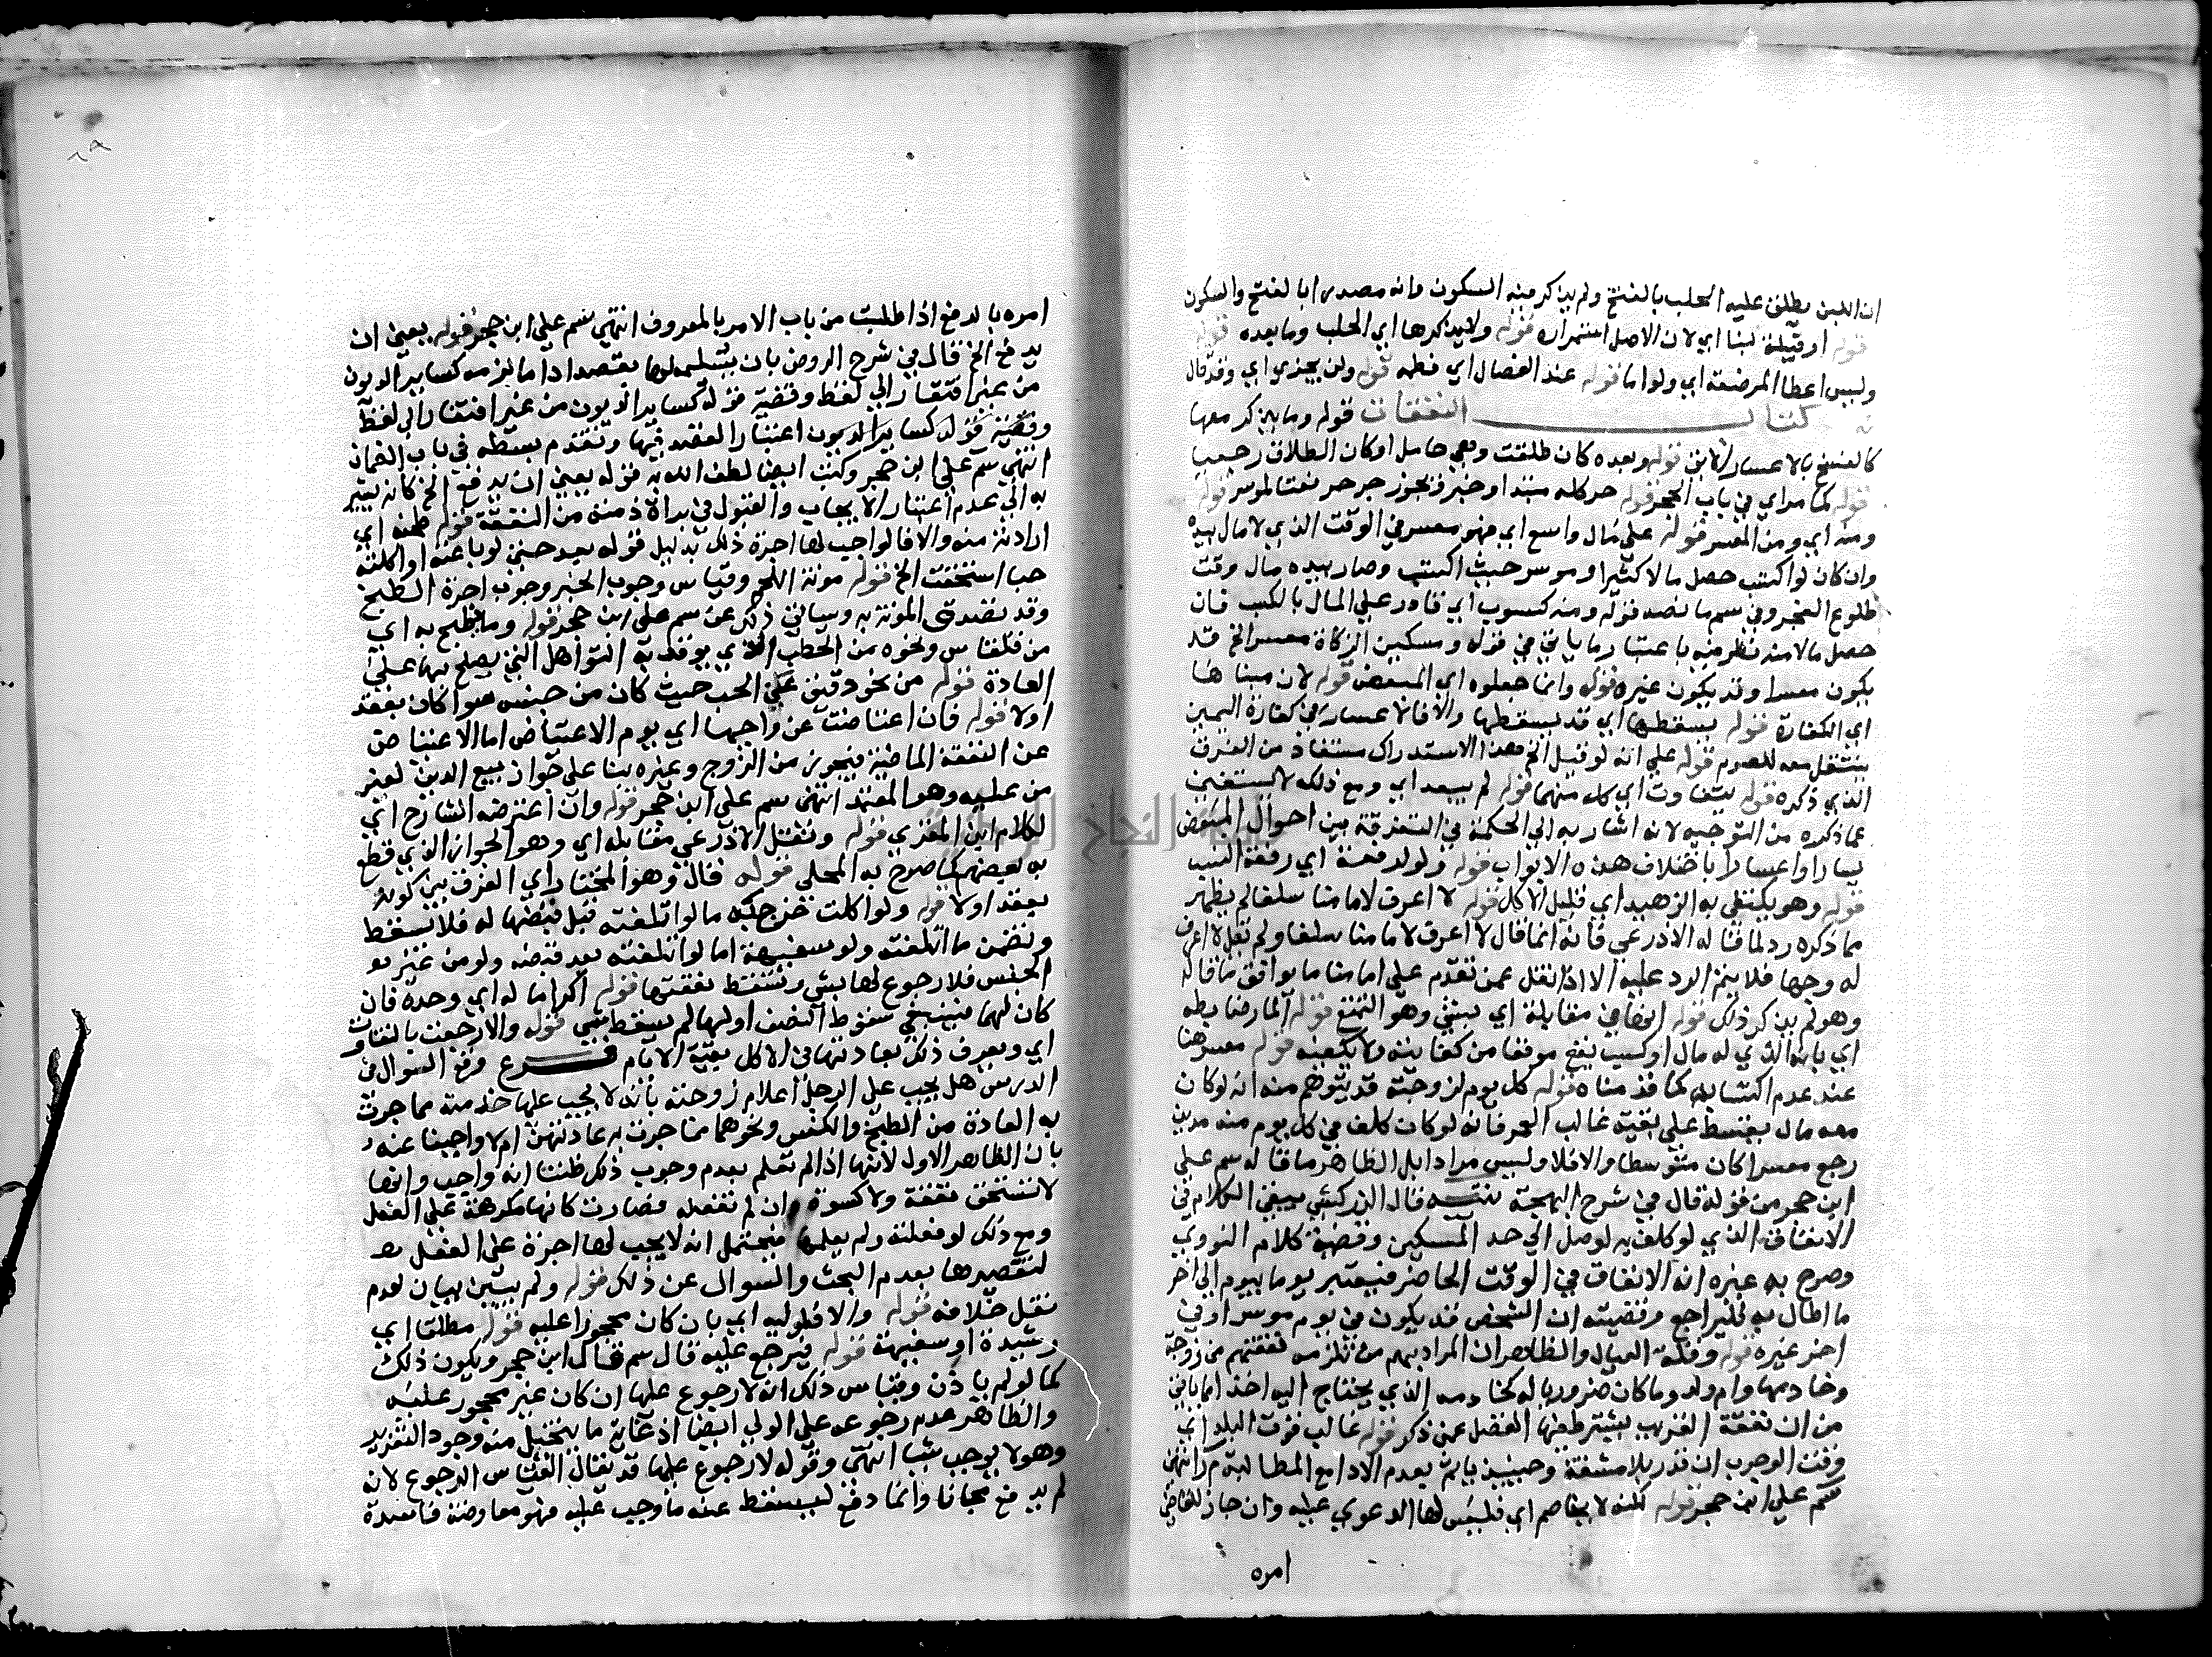 ان اللبن يطلق عليه الحلب بالفتح ولم يذكر منه السكون وانه مصدرا بالفتح والسكون
قوله ارقيلة لبنا اي لان الاصل استمراره قوله ولايذكرها اي الحلب وما بعده قوله
وليس اعطا المرضعة اي ولواما قوله عند انفصال اي فطمه قوله ولن يجزي اي وقد قال
كتاب النفقات قوله وما يذكر معها
كالفسخ بالاعسار الاتي قوله وبعده كان طلقت وهي حامل اوكان الطلاق رجعيا
قوله كما مراي في باب الحجر قوله حر كله مبتدا وخبر فيجوز جر حر نعتا لموسر قوله
ومنه اي ومن المعسر قوله علي مال واسع اي فهو معسر في الوقت الذي لا مال بيده
وان كان لو اكتسب حصل مالا كثيرا وموسر حيث اكتسب وصار بيده مال وقت
طلوع الفجر وفي سم ما نصه قوله ومنه كسوب اي قادر علي المال بالكسب فان
حصل مالا منه نظر فيه باعتبار ما ياتي في قوله ومسكين الزكاة معسر الخ قد
يكون معسرا وقد يكون غيره قوله وانما جعلوه اي المبعض قوله لان مبناها
اي الكفارة قوله يسقطها اي قد يسقطها والا فالاعسار في كفارة اليمين
ينتقل معه للصوم قوله علي انه لو قيل الخ هذا الاستدراك مستفاد من الفرق
الذي ذكره قوله يتفاوت اي كل منهما قوله لم يبعد اي ومع ذلك لا يستغنى
عما ذكره من التوجيه لانه اشار به الي الحكمة في التفرقة بين احوال المبعض
يسارا واعسارا باختلاف هذه الابواب قوله ولو لدفعة اي رفعة النسب
قوله وهو يكتفي به الزهيد اي قليل الاكل قوله لا اعرف لامامنا سلفا لم يظهر
مما ذكره رد لما قاله الاذرعي فانه انما قال لا اعرف لامامنا سلفا ولم تقل لا اعرف
له وجها فلا يتم الرد عليه الا اذا نقل عمن تقدم علي امامنا ما يوافق ما قاله
وهو لم يذكر ذلك قوله ايضا في مقابلة اي بيتي وهو التمتع قوله المارضابطه
اي بانه الذي له مال اوكسب يقع موقعا من كفايته ولا يكفيه قوله معسر هنا
عند عدم اكتسابه كما قدمناه قوله كل يوم لزوجته قد يتوهم منه انه لو كان
معه مال يقسط علي بقية غالب العمر فانه لو كان كلف في كل يوم منه مدين
رجع معسرا كان متوسطا والا فلا وليس مرادا بل الظاهر ما قاله سم علي
ابن حجر من قوله قال في شرح البهجة تنبيه قال الزركشي بيقي الكلام في
الانفاق الذي لو كلف به لوصل الي حد المسكين وقضية كلام النووي
وصرح به غيره انه الانفاق في الوقت الحاضر فيعتبر يوما بيوم الي اخر
ما اطال به فليراجع وقضيته ان الشخص قد يكون في يوم موسرا وفي
اخر غيره قوله وقلة العيال والظاهر ان المراد بهم من تلزمه نفقتهم من زوجة
وخادمها وام ولد وما كان ضروريا له كخادمه الذي يحتاج اليه اخذا مما ياتي
من ان نفقة القريب يشترط فيها الفضل عمن ذكر قوله غالب قوت البلد اي
وقت الوجوب ان قدر بلا مشقة وحينئذ ياثم بعدم الادا مع المطالبة م ر انتهى
سم علي ابن حجر قوله لكنه لا يخاصم اي فليس لها الدعوي عليه وان جاز للقاضي
امره
امره بالدفع اذا طلبت من باب الامر بالمعروف انتهي سم علي ابن حجر قوله يعني ان
يدفع الخ قال في شرح الروض بان يسلمه لها بقصد اداما لزمه كساير الديون
من غير افتقار الي لفظ وقضية قوله كساير الديون من غير افتقار الي لفظ
وقضية قوله كساير الديون اعتبار القصد فيها وتقدم بسطه في باب الضمان
انتهي سم علي ابن حجر وكتب ايضا لطف الله به قوله يعني ان يدفع الخ كانه يشير
به الي عدم اعتبار الايجاب والقبول في براءة ذمته من النفقة قوله طحنه اي
ارادته منه والا فالواجب لها اجرة ذلك بدليل قوله بعد حتى لو باعته او اكلته
حبا استحقت الخ قوله مونة اللحم وقياس وجوب الخبز وجوب اجرة الطبخ
وقد تصدق المونة به وسياتي ذلك عن سم علي ابن حجر قوله وما يطبخ به اي
من قلقاس ونحوه من الحطب الذي يوقد به التوابل التي يصلح بها علي
العادة قوله من نحو دقيق علي الحب حيث كان من جنسه سوا كان بعقد
اولا قوله فان اعتاضت عن واجبها اي يوم الاعتياض اما الاعتياض
عن النفقة الماضية فيجوز من الزوج وغيره بنا علي جواز بيع الدين لغير
من عليه وهو المعتمد انتهى سم علي ابن حجر قوله وان اعترضه الشارح اي
لكلام ابن المقري قوله ونقل الاذرعي مقابله اي وهو الجواز الذي قطع
به بعضهم كما صرح به المحلي قوله قال وهو المختار اي الفرق بين كونه
بعقد اولا قوله ولو اكلت خرج به ما لو اتلفته قبل قبضها له فلا تسقط
وتضمن ما اتلفته ولو سفيهة اما لو اتلفته بعد قبضه ولو من غير
الجنس فلا رجوع لها بشي وتسقط نفقتها قوله اكراما له اي وحده فان
كان لهما فينبغي سقوط النصف اولها لم يسقط شي قوله والا رجعت بالتفاوت
اي ويعرف ذلك بعادتها في الاكل بقية الايام فرع وقع السوال في
الدرس هل يجب علي الرجل اعلام زوجته بانه لا يجب عليها خدمته مما جرت
به العادة من الطبخ والكنس ونحوهما مما جرت به عادتهن ام لا واجبنا عنه
بان الظاهر الاول لانها اذا لم تعلم بعدم وجوب ذلك ظنت انه واجب وانها
لا تستحق نفقة ولا كسوة ان لم تفعله فصارت كانها مكرهة علي الفعل
ومع ذلك لو فعلته ولم يعلمها فيحتمل انه لا يجب لها اجرة علي الفعل
لتقصيرها بعدم البحث والسوال عن ذلك قوله ولم يبين بيان لعدم
نقل خلافه قوله والا فلوليه اي بان كان محجورا عليه قوله مطلقا اي
رشيدة او سفيهة قوله فيرجع عليه قال سم قال ابن حجر ويكون ذلك
كما لو لم ياذن وقياس ذلك انه لا رجوع عليها ان كان غير محجور عليه
والظاهر عدم رجوعه علي الولي ايضا اذ غاية ما يتخيل منه وجود التغرير
وهو لا يوجب شيا انتهي وقوله لا رجوع عليها قد يقال القياس الرجوع لانه
لم يدفع مجانا وانما دفع ليسقط عنه ما وجب عليه فهو معاوضة فاسدة